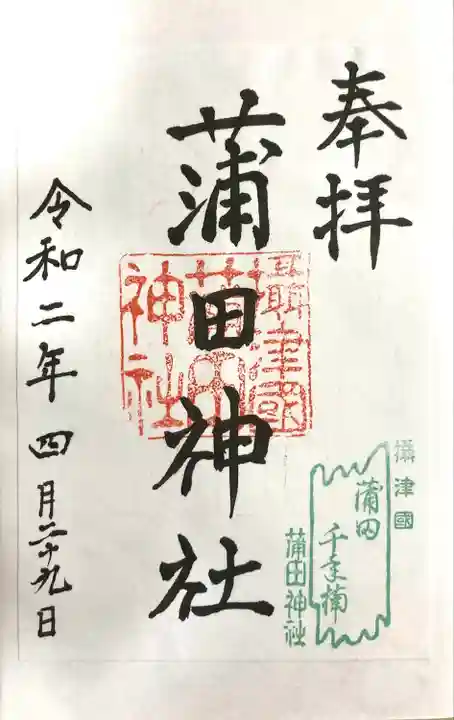 奉拝
蒲田神社
攝津國
蒲田
神社
令和二年四月二十九日
攝津國
蒲田
千年楠
蒲田神社